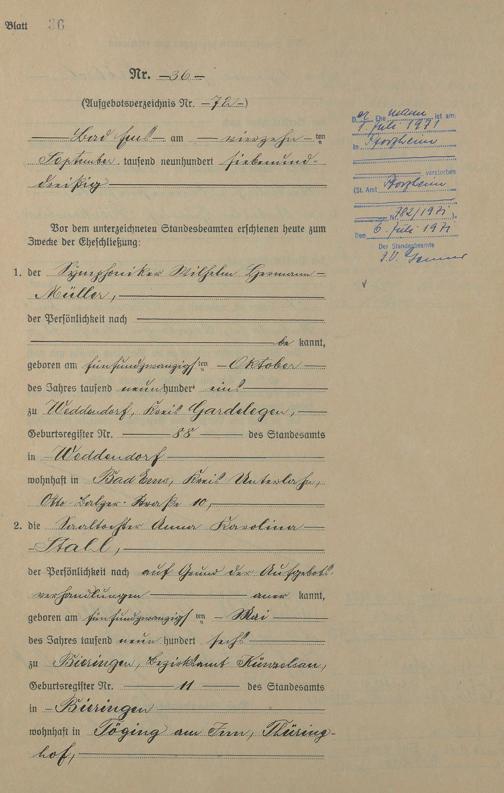 Blatt 36
Nr. 36
(Aufgebotsverzeichnis Nr. 72)
Bad Ems am vierzehnten
September tausend neunhundert siebenund-
dreißig
Vor dem unterzeichneten Standesbeamten erschienen heute zum
Zwecke der Eheschließung:
1. der Symphoniker Wilhelm Hermann
Müller,
der Persönlichkeit nach
be kannt,
geboren am fünfundzwanzigsten Oktober
des Jahres tausend neunhundert eins
zu Weddendorf, Kreis Gardelegen,
Geburtsregister Nr. 88 des Standesamts
in Weddendorf
wohnhaft in Bad Ems, Kreis Unterlahn,
Otto-Balzer-Straße 10,
2. die Saaltochter Anna Karolina
Stall,
der Persönlichkeit nach auf Grund der Aufgebots-
verhandlungen aner kannt,
geboren am fünfundzwanzigsten Mai
des Jahres tausend neun hundert sechs
zu Bieringen, Bezirksamt Künzelsau,
Geburtsregister Nr. 11 des Standesamts
in Bieringen
wohnhaft in Töging am Inn, Thüring-
hof,
Ehemann ist am
1. Juli 1971
in Pforzheim
verstorben
(St. Amt Pforzheim
Nr. 782/1971).
Den 6. Juli 1971
Der Standesbeamte
J.V.